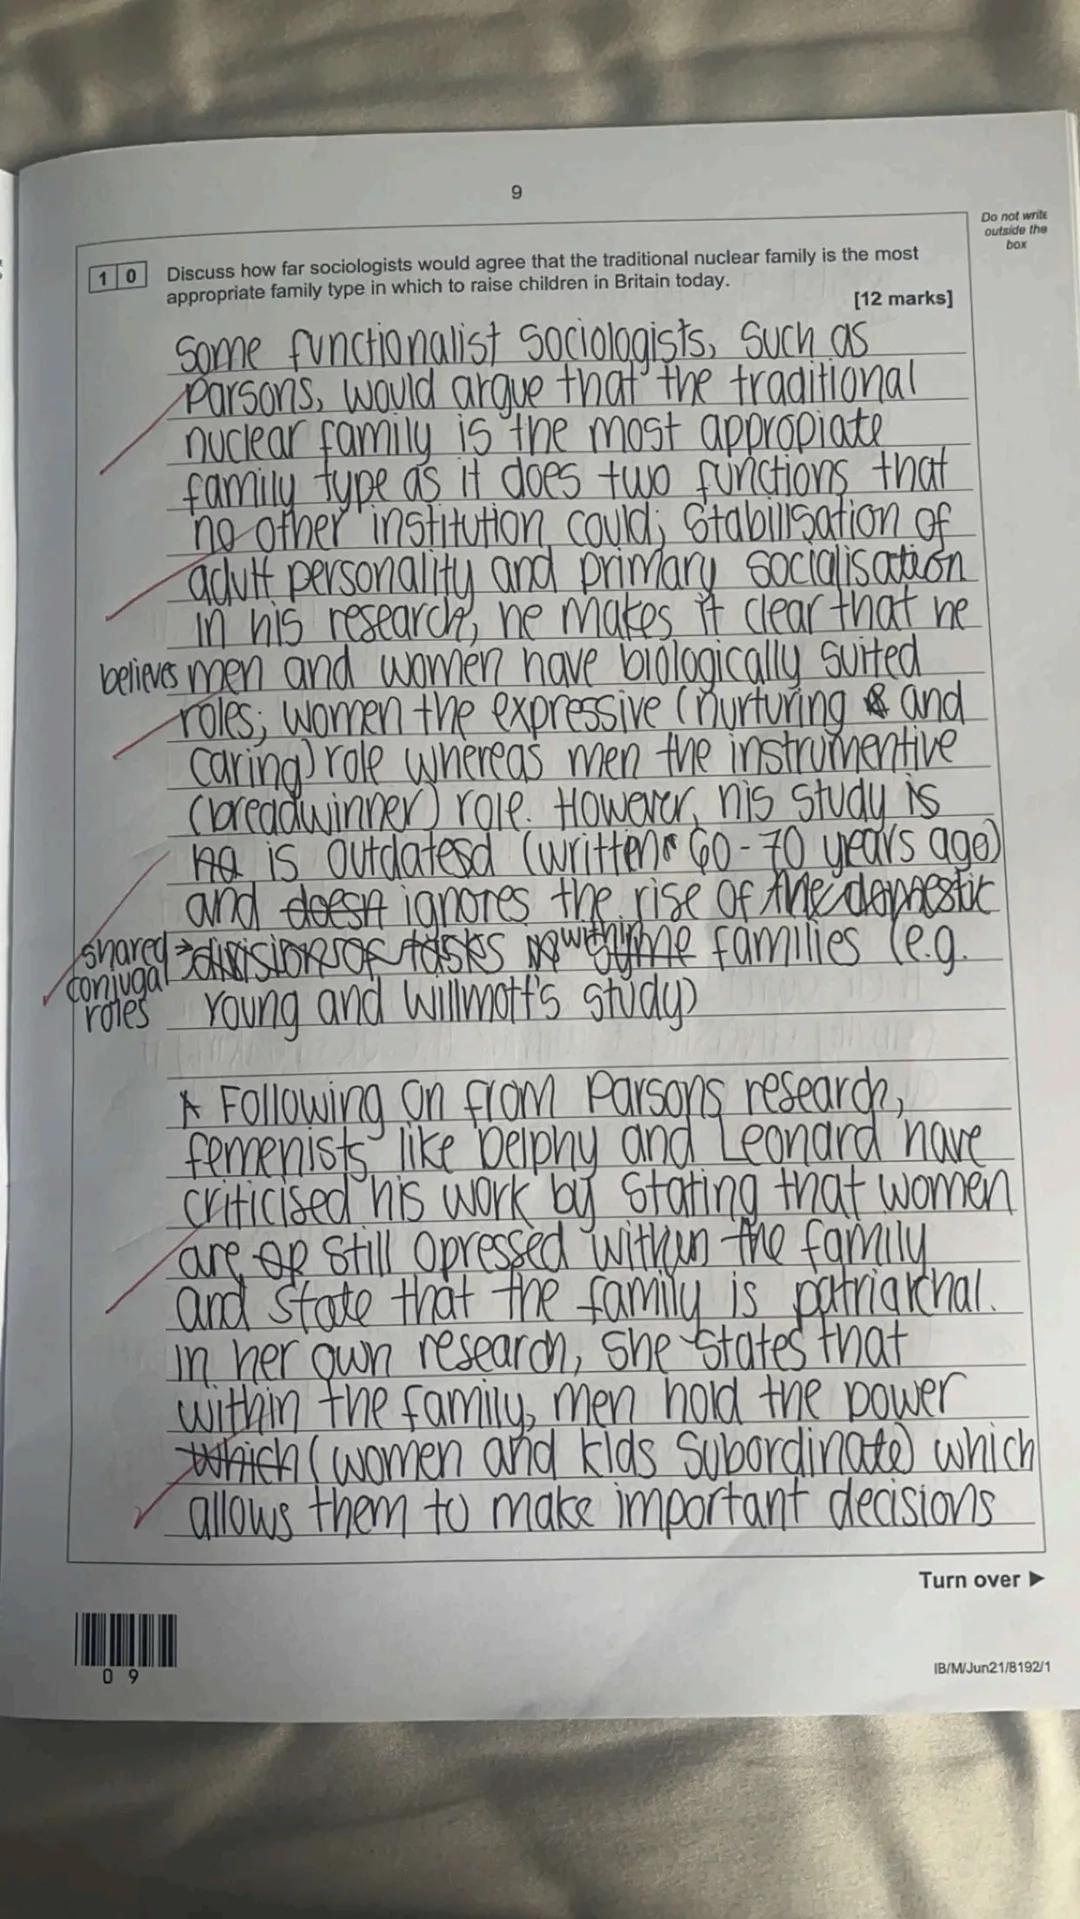 9
Do not write
outside the
box
1 0 Discuss how far sociologists would agree that the traditional nuclear family is the most
appropriate family type in which to raise children in Britain today.
[12 marks]
Some functionalist sociologists, such as
Parsons, would argue that the traditional
nuclear family is the most appropiate
family type as it does two functions that
no other institution could; stabilisation of
adult personality and primary socialisation
in his research, he makes it clear that he
believes men and women have biologically suited
roles; women the expressive (nurturing and
caring) role whereas men the instrumentive
(breadwinner) role. However, his study is
is outdatesd (written 60-70 years ago)
and doesn't ignores the rise of the domestic
shared → division of tasks in within the families (e.g.
conjugal
roles Young and Willmott's study)
Following on from Parsons research,
femenists like Delphy and Leonard have
criticised his work by stating that women
are op still opressed within the family
and state that the family is patriarchal.
In her own research, she states that
within the family, men hold the power
which (women and kids subordinate) which
allows them to make important decisions
Turn over ►
0 9
IB/M/Jun21/8192/1